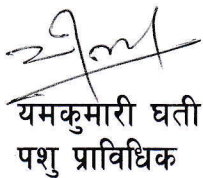 यमकुमारी घर्ती
पशु प्राविधिक